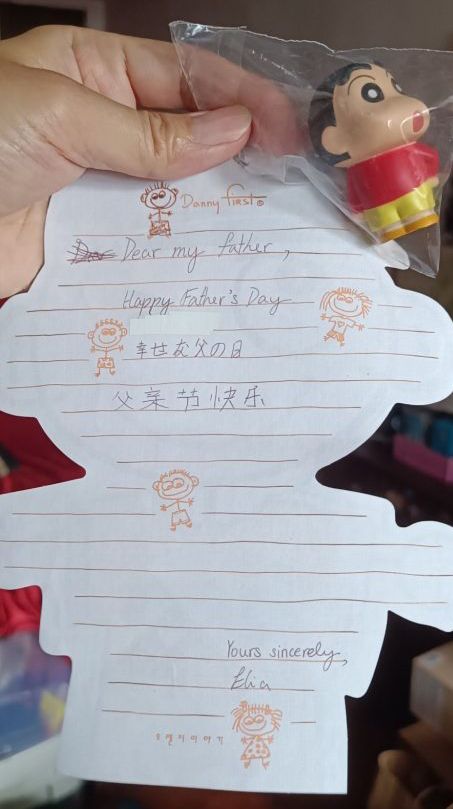 Danny first
Dear my father,
Happy Father's Day
幸世な父の日
父亲节快乐
Yours sincerely,
Elia
이야기